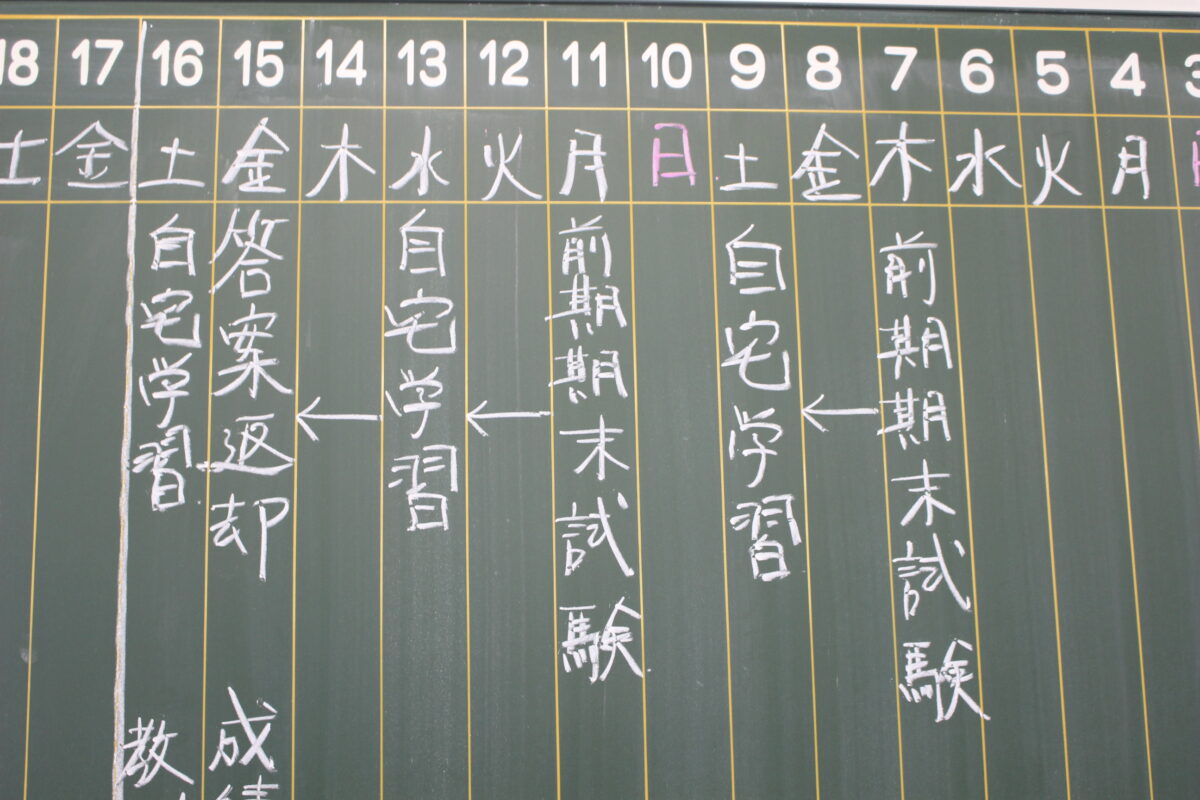 3 4 5 6 7 8 9 10 11 12 13 14 15 16 17 18
月 火 水 木 金 土 日 月 火 水 木 金 土 金 土
前期期末試験
←
自宅学習
前期期末試験
←
自宅学習
←
答案返却 成績
自宅学習 教